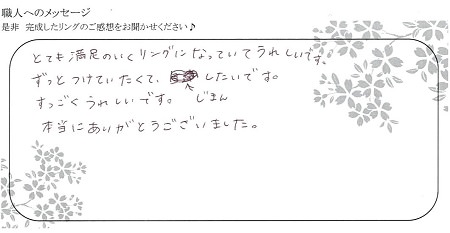 職人へのメッセージ
是非 完成したリングのご感想をお聞かせください♪
とても満足のいくリングになっていてうれしいです。
ずっとつけていたくて、じまんしたいです。
すっごくうれしいです。
本当にありがとうございました。